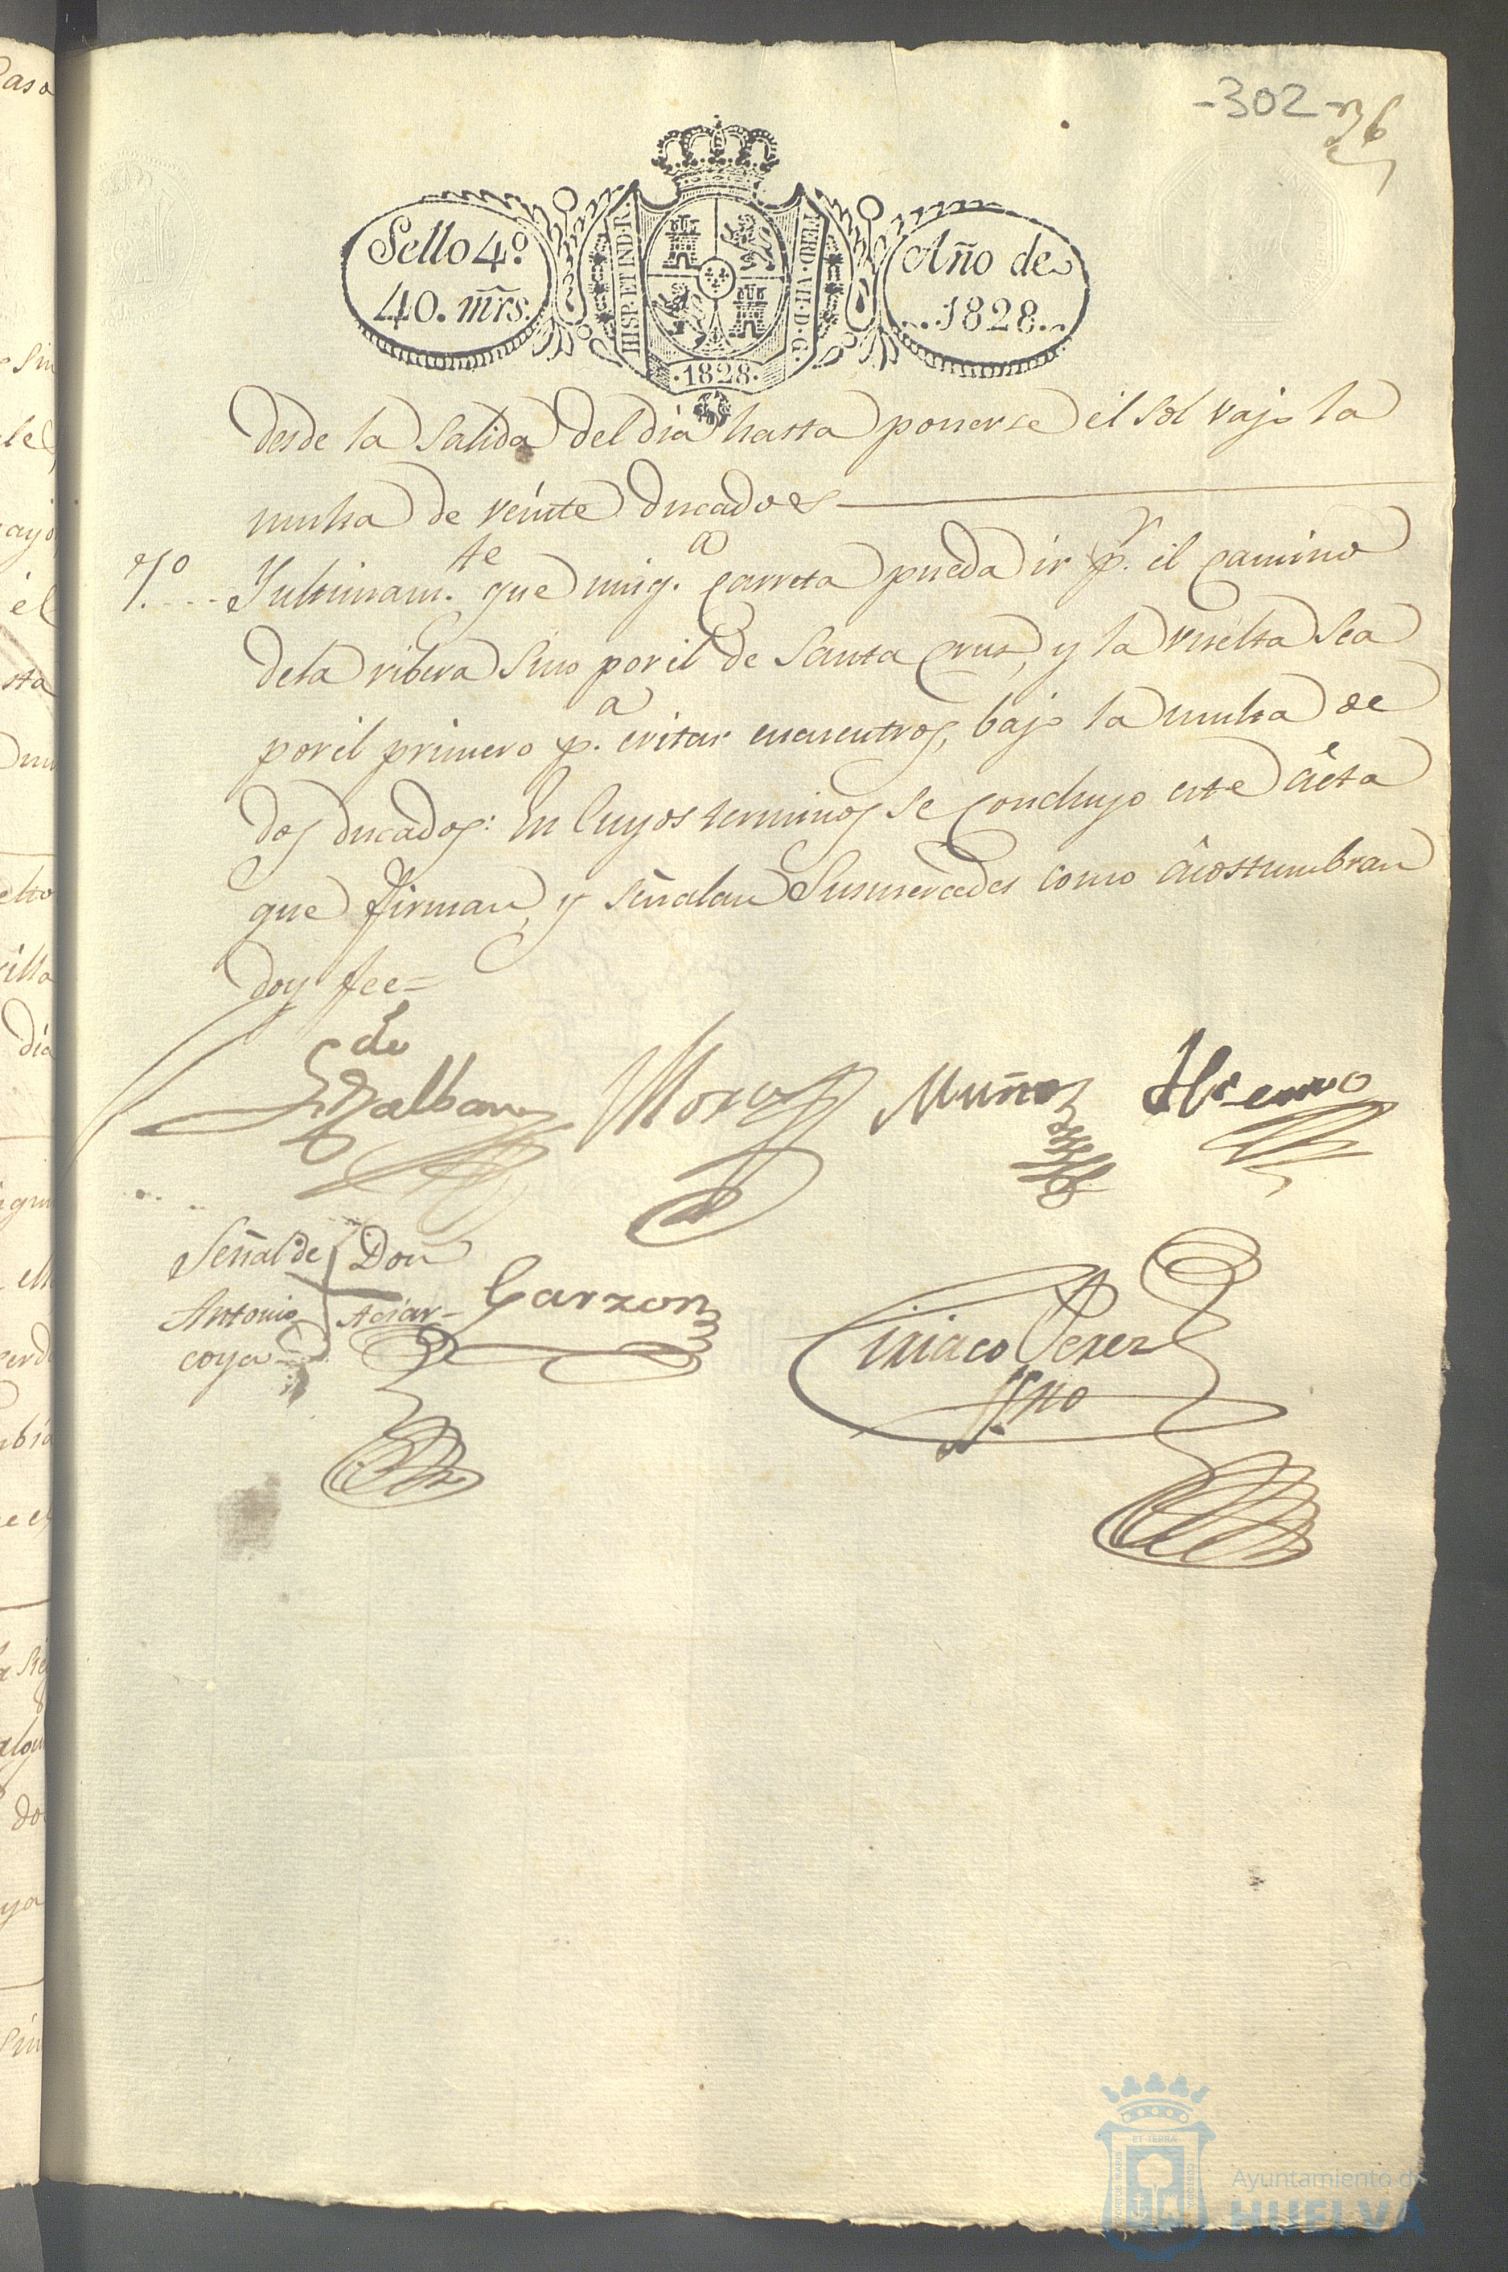 -302-
36
Sello 4º
40. mrs.
HISP. ET IND. R.
FERD. VII. D. G.
.1828.
Año de
..1828..
desde la salida del dia hasta ponerse él sol vajo la
multa de veinte ducados
7º.... Y ultimam.te que ning.a carreta pueda ir p.r él camino
dela ribera sino por él de Santa Cruz, y la vuelta sea
por él primero p.a evitar encuentros, bajo la multa de
dos ducados: En cuyos terminos se concluyo este ácta
que firman, y señalan Susmercedes como ácostumbran
doy fee=
Mora Muñoz
Señal de Don
Antonio Aciar-
coya
Garzon
Ciriaco Perez
Ssno
Ayuntamiento de
HUELVA